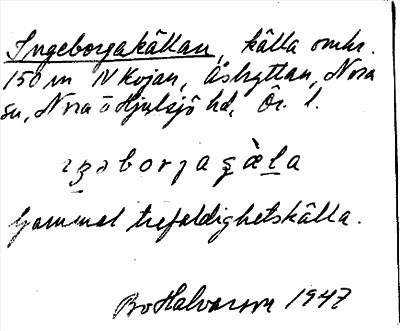 Ingeborgakällan, källa omkr.
150 m N Kojan, Åshyttan, Nora
sn, Nora o Hjulsjö hd, Ör. l.
Gammal trefaldighetskälla.
Bo Halvarson 1947